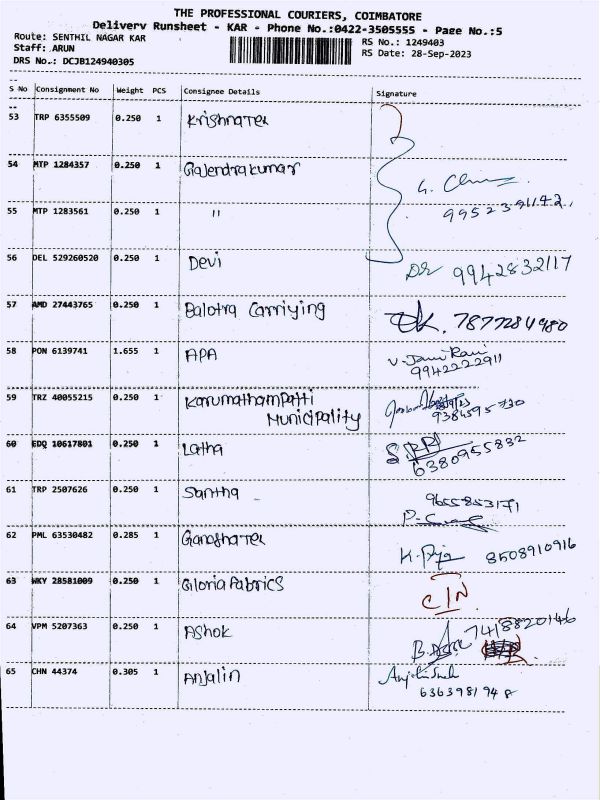 THE PROFESSIONAL COURIERS, COIMBATORE
Delivery Runsheet - KAR - Phone No.:0422-3505555 - Page No.:5
Route: SENTHIL NAGAR KAR
RS No.: 1249403
Staff: ARUN
RS Date: 28-Sep-2023
DRS No.: DCJB124940305
S No Consignment No Weight PCS Consignee Details Signature
53 TRP 6355509 0.250 1 KrishnaTex
54 MTP 1284357 0.250 1 Gajendrakumar
9952391142
55 MTP 1283561 0.250 1 "
56 DEL 529260520 0.250 1 Devi 9942832117
57 AMD 27443765 0.250 1 Balotra Carriying 7877284980
58 PON 6139741 1.655 1 APA
9942222911
59 TRZ 40055215 0.250 1 Karumathampatti
Municipality 9384595730
60 EDQ 10617801 0.250 1 Latha
6380955832
61 TRP 2507626 0.250 1 Santha 9655853171
62 PML 63530482 0.285 1 GanathaTex K. Puja 8508910916
63 WKY 28581009 0.250 1 Gloria Fabrics CIN
64 VPM 5207363 0.250 1 Ashok 7418820146
65 CHN 44374 0.305 1 Anjalin
6363981948